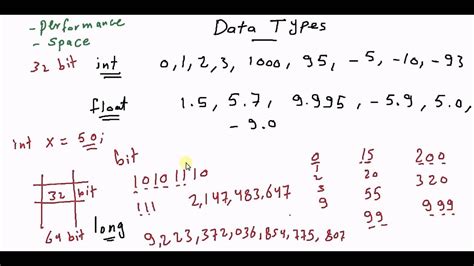 - performance
- space
Data Types
32 bit int 0, 1, 2, 3, 1000, 95, -5, -10, -93
float 1.5, 5.7, 9.995, -5.9, 5.0,
-9.0
int x = 50;
bit
10101110
111
2,147,483,647
0 15 200
1 20 320
3
9 55
99 999
32 bit
64 bit long
9,223,372,036,854,775,807